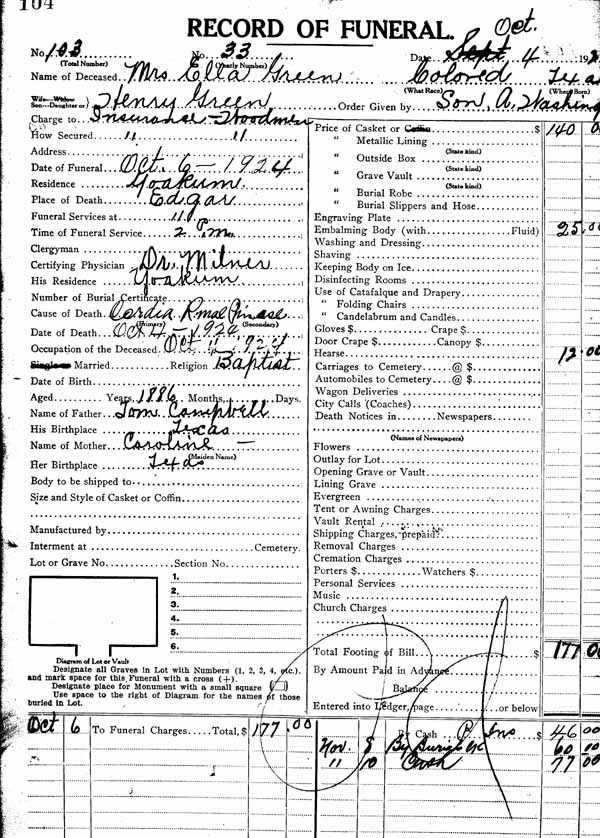 104
RECORD OF FUNERAL.
Oct.
No. 103 No. 33 Date Sept. 4 192
(Total Number) (Yearly Number)
Name of Deceased Mrs Ella Green Colored Texas
(What Race) (Where Born)
Wife Widow
Son-Daughter or) Henry Green Order Given by Son A. Washing
Charge to Insurance Woodmen
How Secured " "
Address
Date of Funeral Oct. 6 - 1924
Residence Yoakum
Place of Death Edgar
Funeral Services at "
Time of Funeral Service 2 P.m.
Clergyman
Certifying Physician Dr. Milner
His Residence Yoakum
Number of Burial Certificate
Cause of Death
(Primary) (Secondary)
Date of Death Oct 4 - 192
Occupation of the Deceased Oct 4 1924
Single Married Religion Baptist
Date of Birth
Aged Years, 1886 Months, Days.
Name of Father Tom Campbell
His Birthplace Texas
Name of Mother Caroline -
(Maiden Name)
Her Birthplace Texas
Body to be shipped to
Size and Style of Casket or Coffin
Manufactured by
Interment at Cemetery.
Lot or Grave No. Section No.
1.
2.
3.
4.
5.
6.
Diagram of Lot or Vault
Designate all Graves in Lot with Numbers (1, 2, 3, 4, etc.), and mark space for this Funeral with a cross (+).
Designate place for Monument with a small square
Use space to the right of Diagram for the names of those buried in Lot.
Price of Casket or Coffin $ 140 0
" Metallic Lining
(State kind)
" Outside Box
(State kind)
" Grave Vault
(State kind)
" Burial Robe
" Burial Slippers and Hose
Engraving Plate
Embalming Body (with Fluid) 25.00
Washing and Dressing
Shaving
Keeping Body on Ice
Disinfecting Rooms
Use of Catafalque and Drapery
" Folding Chairs
" Candelabrum and Candles
Gloves $ Crape $
Door Crape $ Canopy $
Hearse 12.00
Carriages to Cemetery @ $
Automobiles to Cemetery @ $
Wagon Deliveries
City Calls (Coaches)
Death Notices in Newspapers
(Names of Newspapers)
Flowers
Outlay for Lot
Opening Grave or Vault
Lining Grave
Evergreen
Tent or Awning Charges
Vault Rental
Shipping Charges, prepaid
Removal Charges
Cremation Charges
Porters $ Watchers $
Personal Services
Music
Church Charges
Total Footing of Bill $ 177 00
By Amount Paid in Advance
Balance
Entered into Ledger, page or below
Oct 6 To Funeral Charges Total, $ 177.00
By Cash Ins $ 46 00
Nov. 8 By Burial 60 10
" 10 Cash 77 00